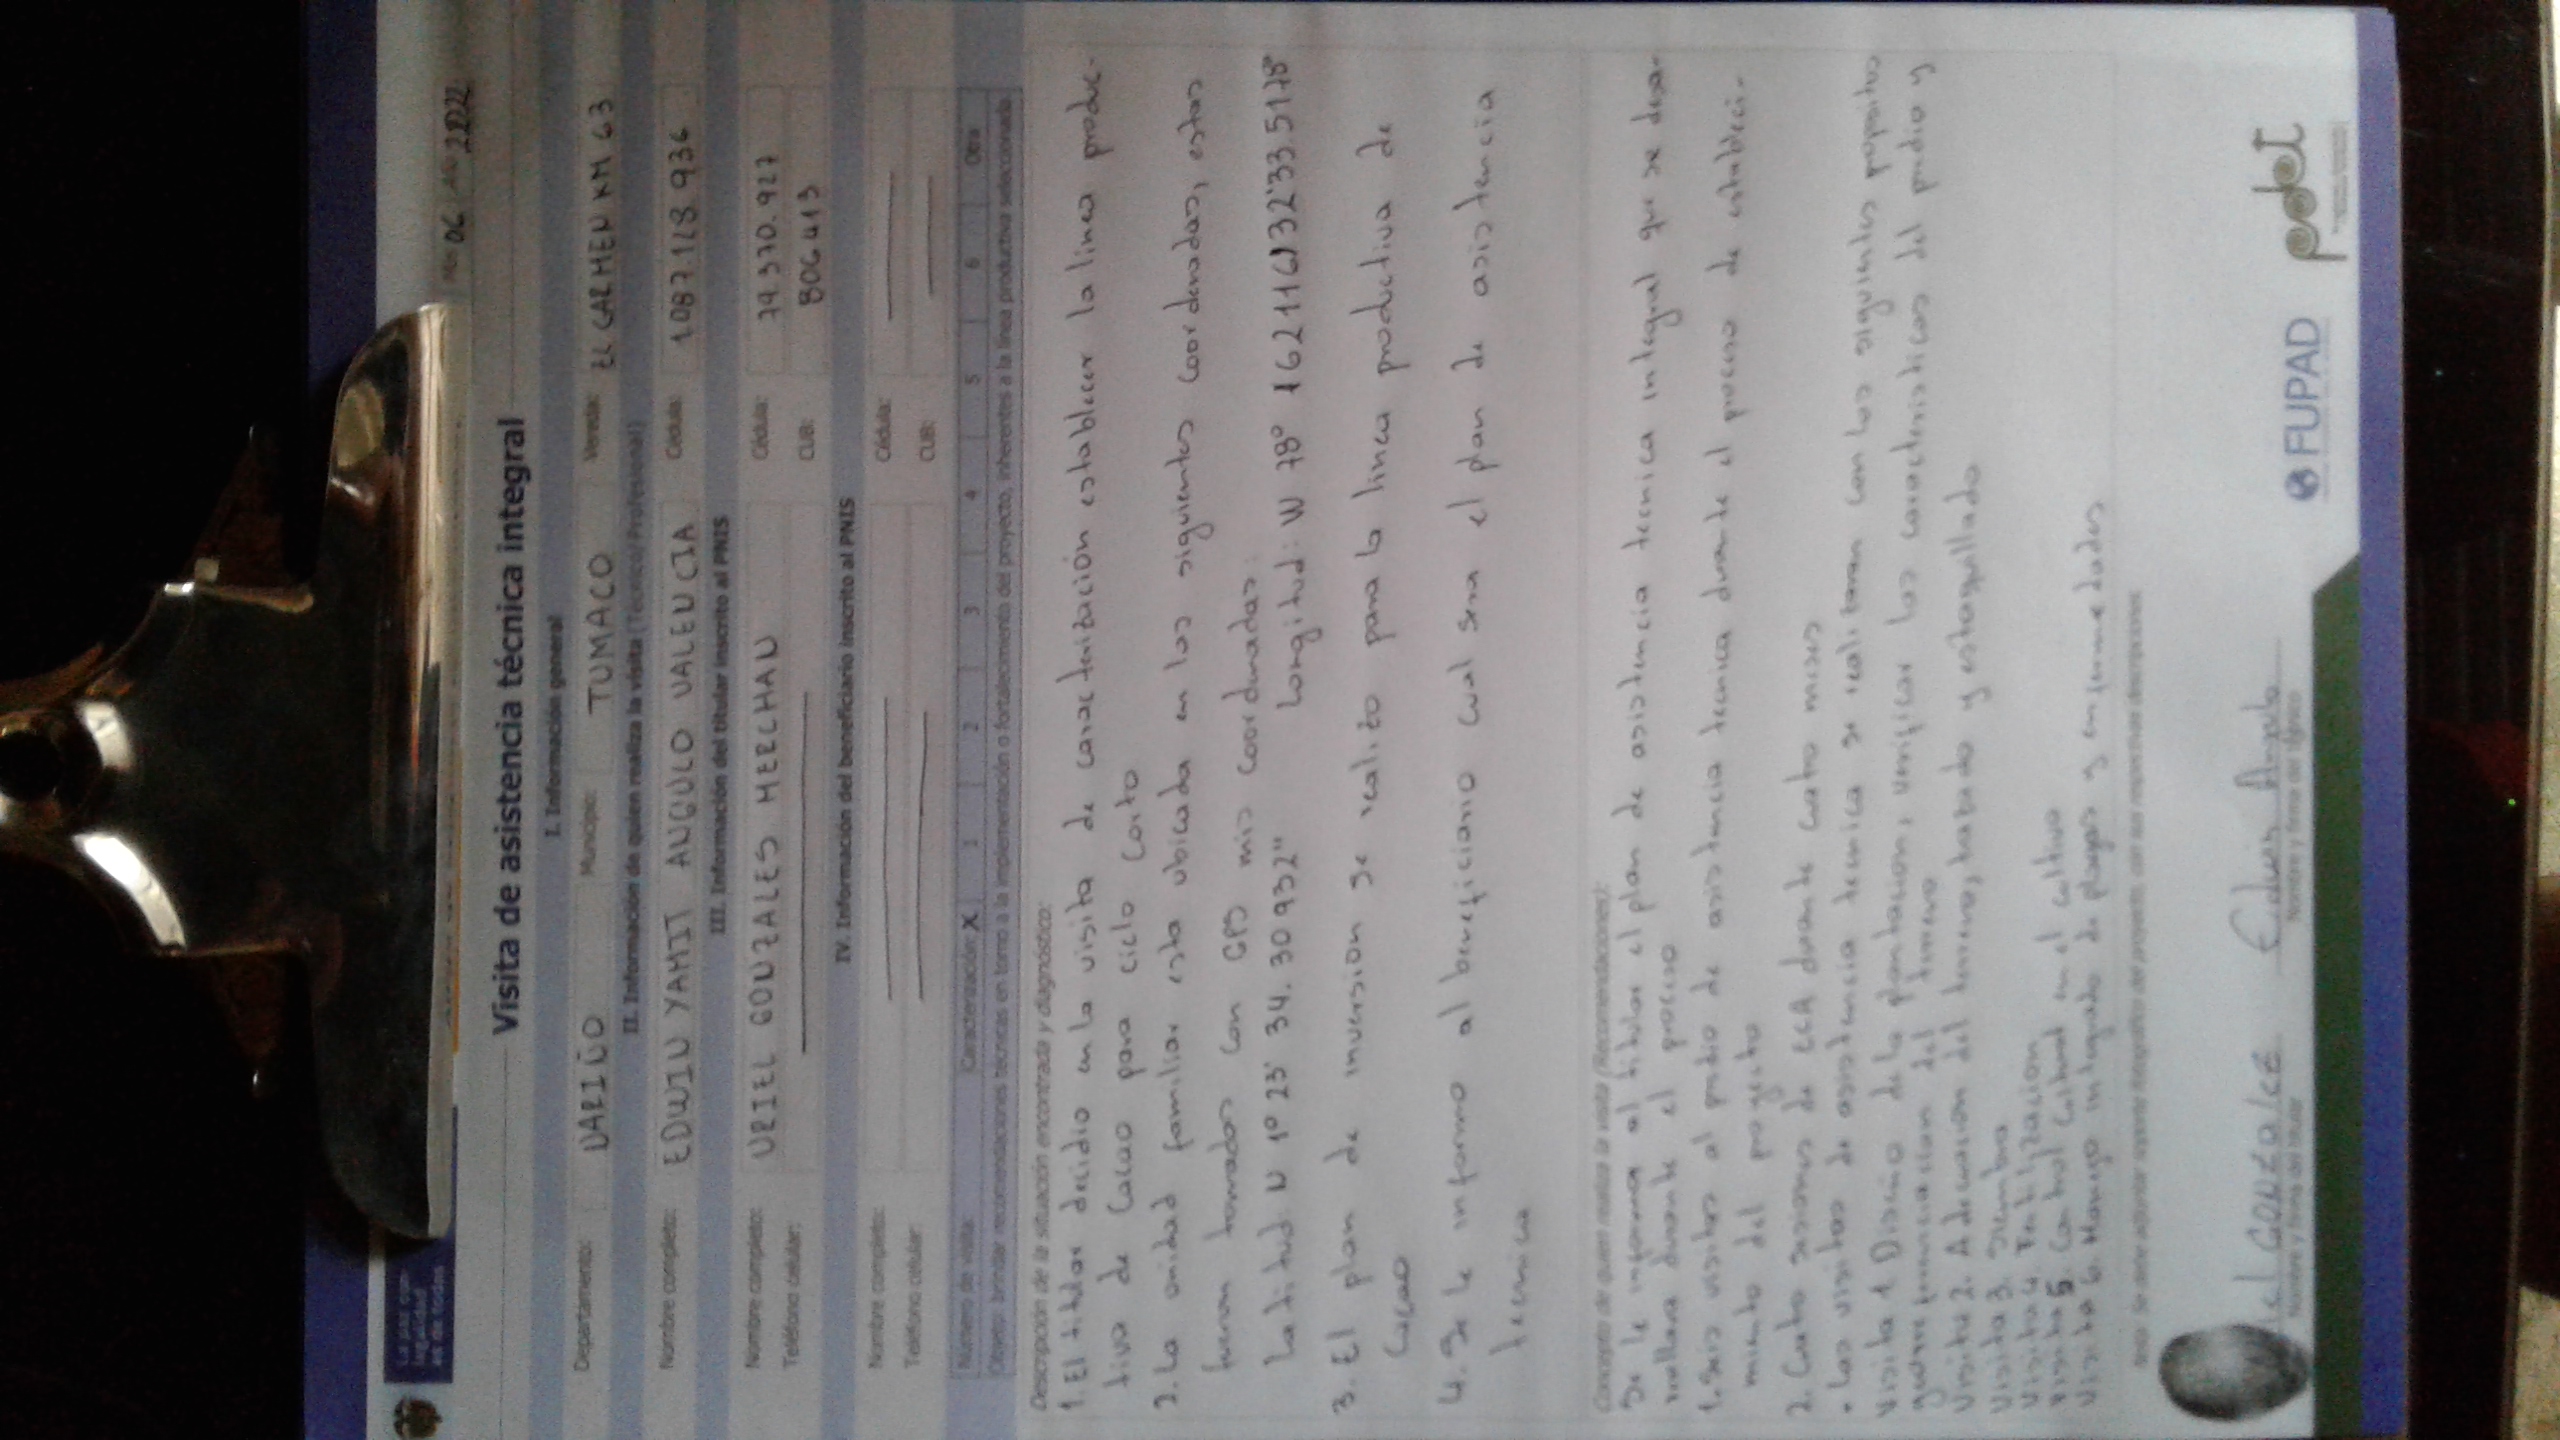 La paz con
legalidad
es de todos
Mes 06 Año 2022
Visita de asistencia técnica integral
I. Información general
Departamento: NARIÑO Municipio: TUMACO Vereda: EL CARMEN KM 63
II. Información de quien realiza la visita (Técnico/ Profesional)
Nombre completo: EDWIN YAMIT ANGULO VALENCIA Cédula: 1087128936
III. Información del titular inscrito al PNIS
Nombre completo: URIEL GONZALES MERCHAN Cédula: 79.570.927
Teléfono celular: CUB: 806413
IV. Información del beneficiario inscrito al PNIS
Nombre completo: Cédula:
Teléfono celular: CUB:
Número de visita: Caracterización: X 1 2 3 4 5 6 Otra
Objeto: brindar recomendaciones técnicas en torno a la implementación o fortalecimiento del proyecto, inherentes a la línea productiva seleccionada
Descripción de la situación encontrada y diagnóstico:
1. El titular decidio en la visita de caracterización establecer la linea produc-
tiva de Cacao para ciclo corto
2. La unidad familiar esta ubicada en las siguientes coordenadas, estas
fueron tomadas con GPS mis coordenadas:
Latitud N 1º 23' 34. 30932" Longitud: W 78º
3. El plan de inversion se realizo para la linea productiva de
Cacao
4. Se le informo al beneficiario cual sera el plan de asistencia
tecnica
Concepto de quien realiza la visita (Recomendaciones):
Se le informa al titular el plan de asistencia tecnica integral que se desa-
rrollara durante el proceso
1. Seis visitas al predio de asistencia tecnica durante el proceso de estableci-
miento del proyecto
2. Cuatro sesiones de ECA durante cuatro meses
• Las visitas de asistencia tecnica se realizaran con los siguientes propositos
Visita 1 Diseño de la plantacion, verificar las caracteristicas del predio y
georreferenciacion del terreno
Visita 2. Adecuacion del terreno, trazado y estaquillado
Visita 3. Siembra
Visita 4. Fertilizacion
Visita 5. Control Cultural en el cultivo
Visita 6. Manejo integrado de plagas y enfermedades
Nota: Se debe adjuntar soporte fotográfico del proyecto, con sus respectivas descripciones
Gonzalez Edwin Angulo
Nombre y firma del titular Nombre y firma del técnico
FUPAD pdet